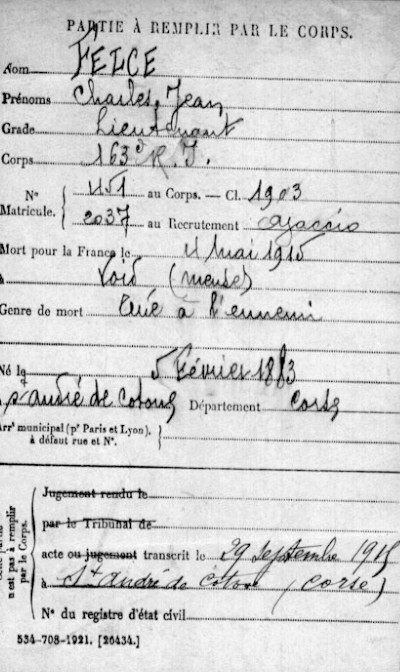 PARTIE À REMPLIR PAR LE CORPS.
Nom FELCE
Prénoms Charles, Jean
Grade Lieutenant
Corps 163e R. I.
N° Matricule. { 451 au Corps. — Cl. 1903
2037 au Recrutement Ajaccio
Mort pour la France le 4 mai 1915
à Void (meuse)
Genre de mort Tué à l'ennemi
Né le 5 Février 1883
à St André de Cotone Département Corse
Arrt municipal (pr Paris et Lyon), à défaut rue et N°.
Cette partie n'est pas à remplir par le Corps.
Jugement rendu le
par le Tribunal de
acte ou jugement transcrit le 29 septembre 1915
à St André de Cotone (Corse)
N° du registre d'état civil
534-708-1921. [26434.]